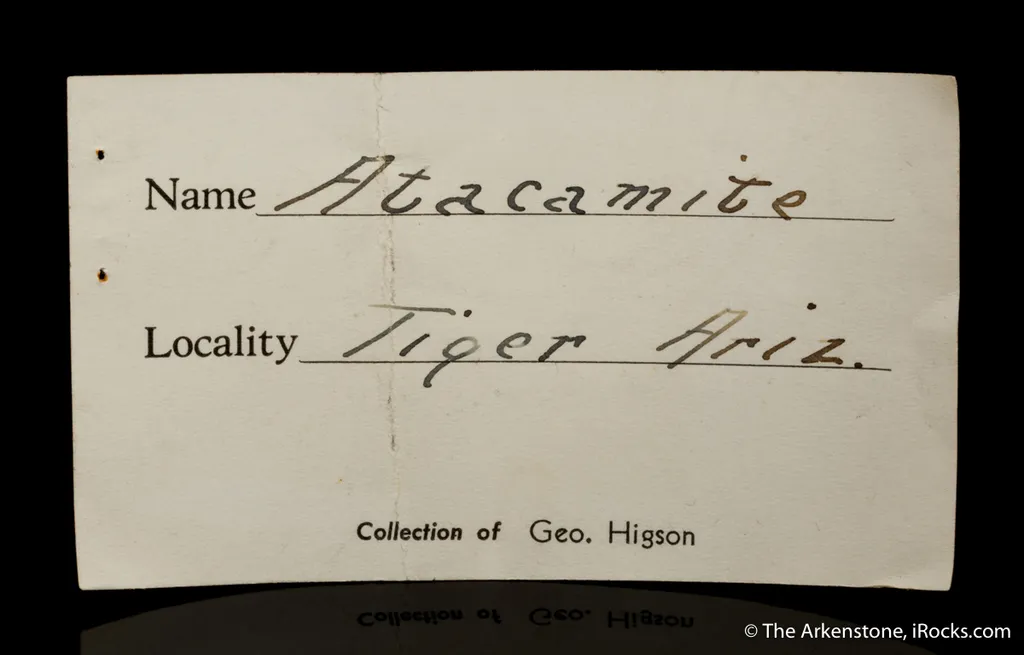 Name Atacamite
Locality Tiger Ariz.
Collection of Geo. Higson
© The Arkenstone, iRocks.com